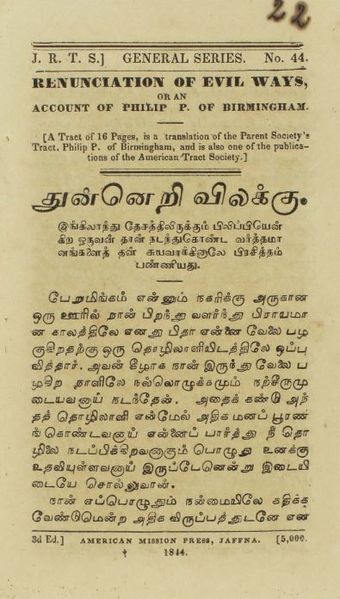 22
J. R. T. S.] GENERAL SERIES. No. 44.
RENUNCIATION OF EVIL WAYS,
OR AN
ACCOUNT OF PHILIP P. OF BIRMINGHAM.
[A Tract of 16 Pages, is a translation of the Parent Society's
Tract, Philip P. of Birmingham, and is also one of the publica-
tions of the American Tract Society.]
துன்னெறி விலக்கு.
இங்கிலாந்து தேசத்திலிருக்கும் பிலிப்பியென்
கிற ஒருவன் தான் நடந்துகொண்ட வர்த்தமா
னங்களைத் தன் சுயவாக்கினாலே பிரசித்தம்
பண்ணியது.
பேறமிங்கம் என்னும் நகரிக்கு அருகான
ஒரு ஊரில் நான் பிறந்து வளர்ந்து பிராயமா
ன காலத்திலே எனது பிதா என்னை வேலை பழ
குகிறதற்கு ஒரு தொழிலாளியிடத்திலே ஒப்பு
வித்தார். அவன் கீழாக நான் இருந்து வேலை ப
ழகிற நாளிலே நல்லொழுக்கமும் நற்சீருமு
டையவனாய் நடந்தேன். அதைக் கண்டு அந்
தத் தொழிலாளி என்மேல் அதிக மனப் பூரண
ங் கொண்டவனாய் என்னைப் பார்த்து நீ தொ
ழிலை நடப்பிக்கிறவனாகும் பொழுது உனக்கு
உதவியுள்ளவனாய் இருப்பேனென்று இடையி
டையே சொல்லுவான்.
நான் எப்பொழுதும் நன்மையிலே கதிக்க
வேண்டுமென்ற அதிக விருப்பத்துடனே என
3d Ed.] AMERICAN MISSION PRESS, JAFFNA. [5,000.
† 1844.